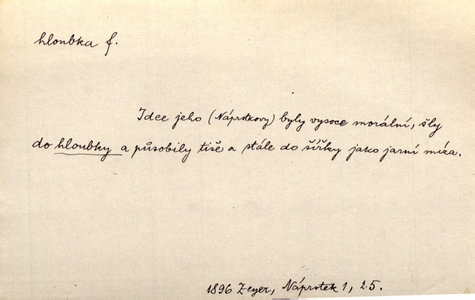 hloubka f.
Idee jeho (Náprstkovy) byly vysoce morální, šly
do hloubky a působily tiše a stále do šířky jako jarní míza.
1896 Zeyer, Náprstek 1, 25.